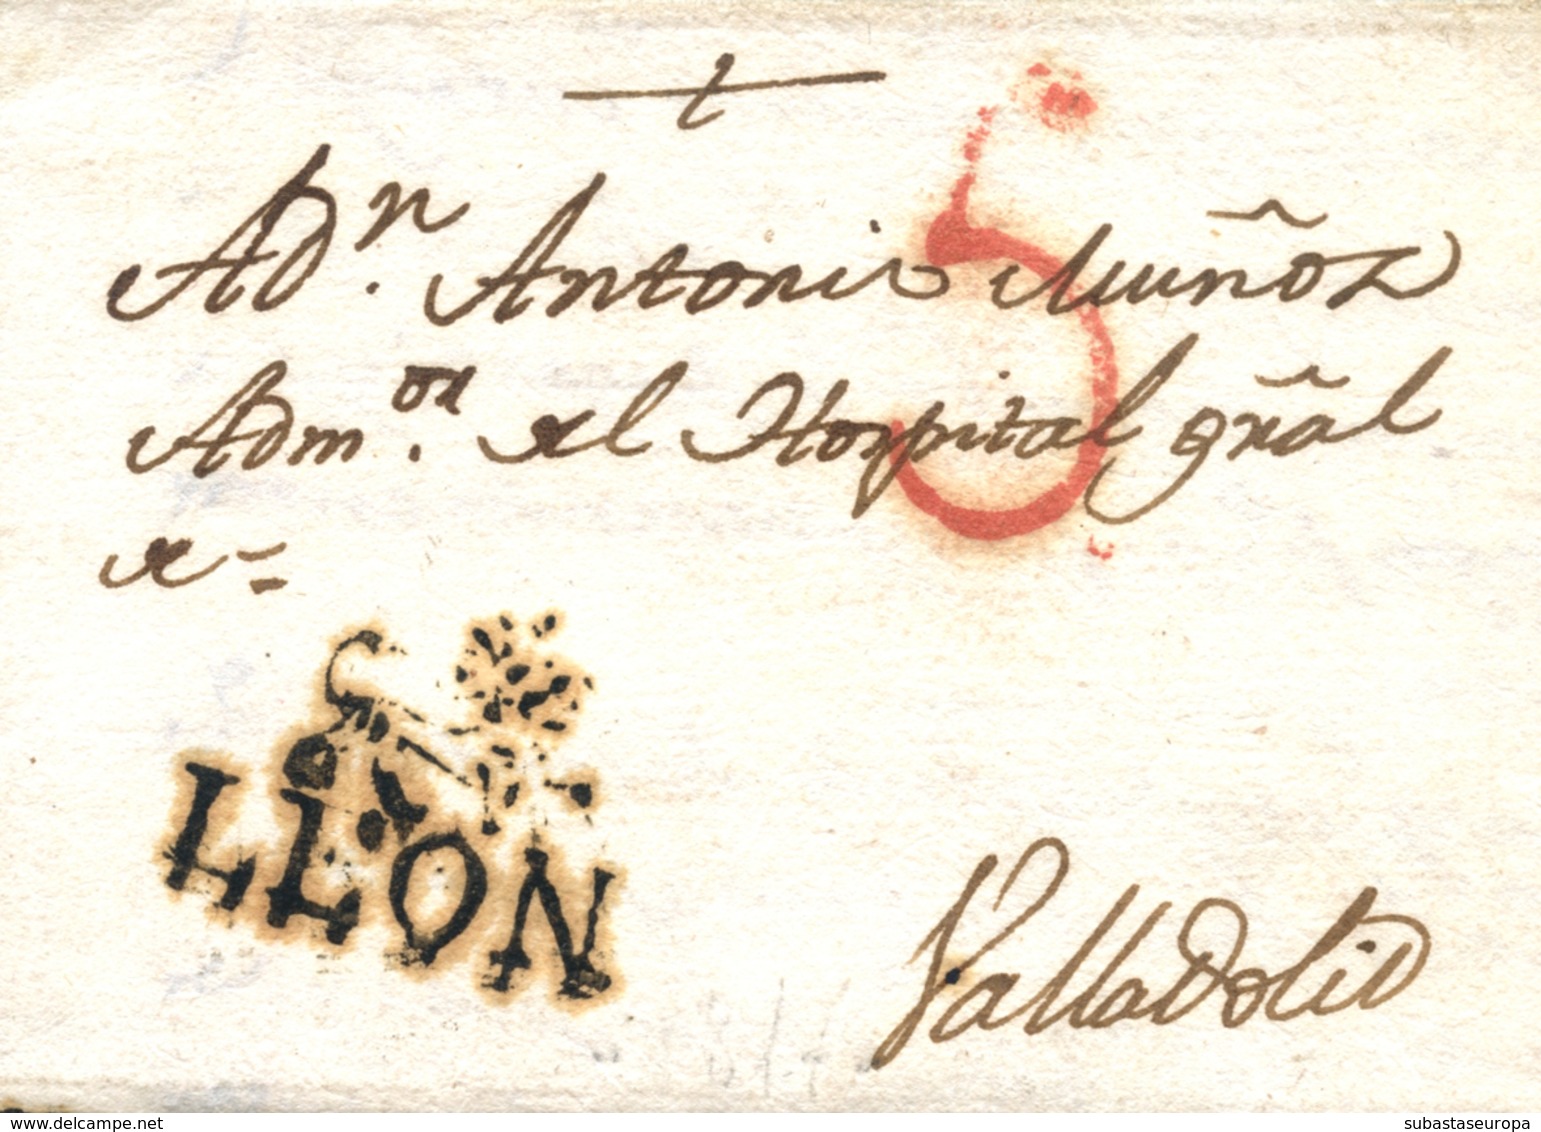 5
A Dn. Antonio Muñoz
Admor. del Hospital gñal
de
LEON
Valladolid
www.delcampe.net
subastaseuropa